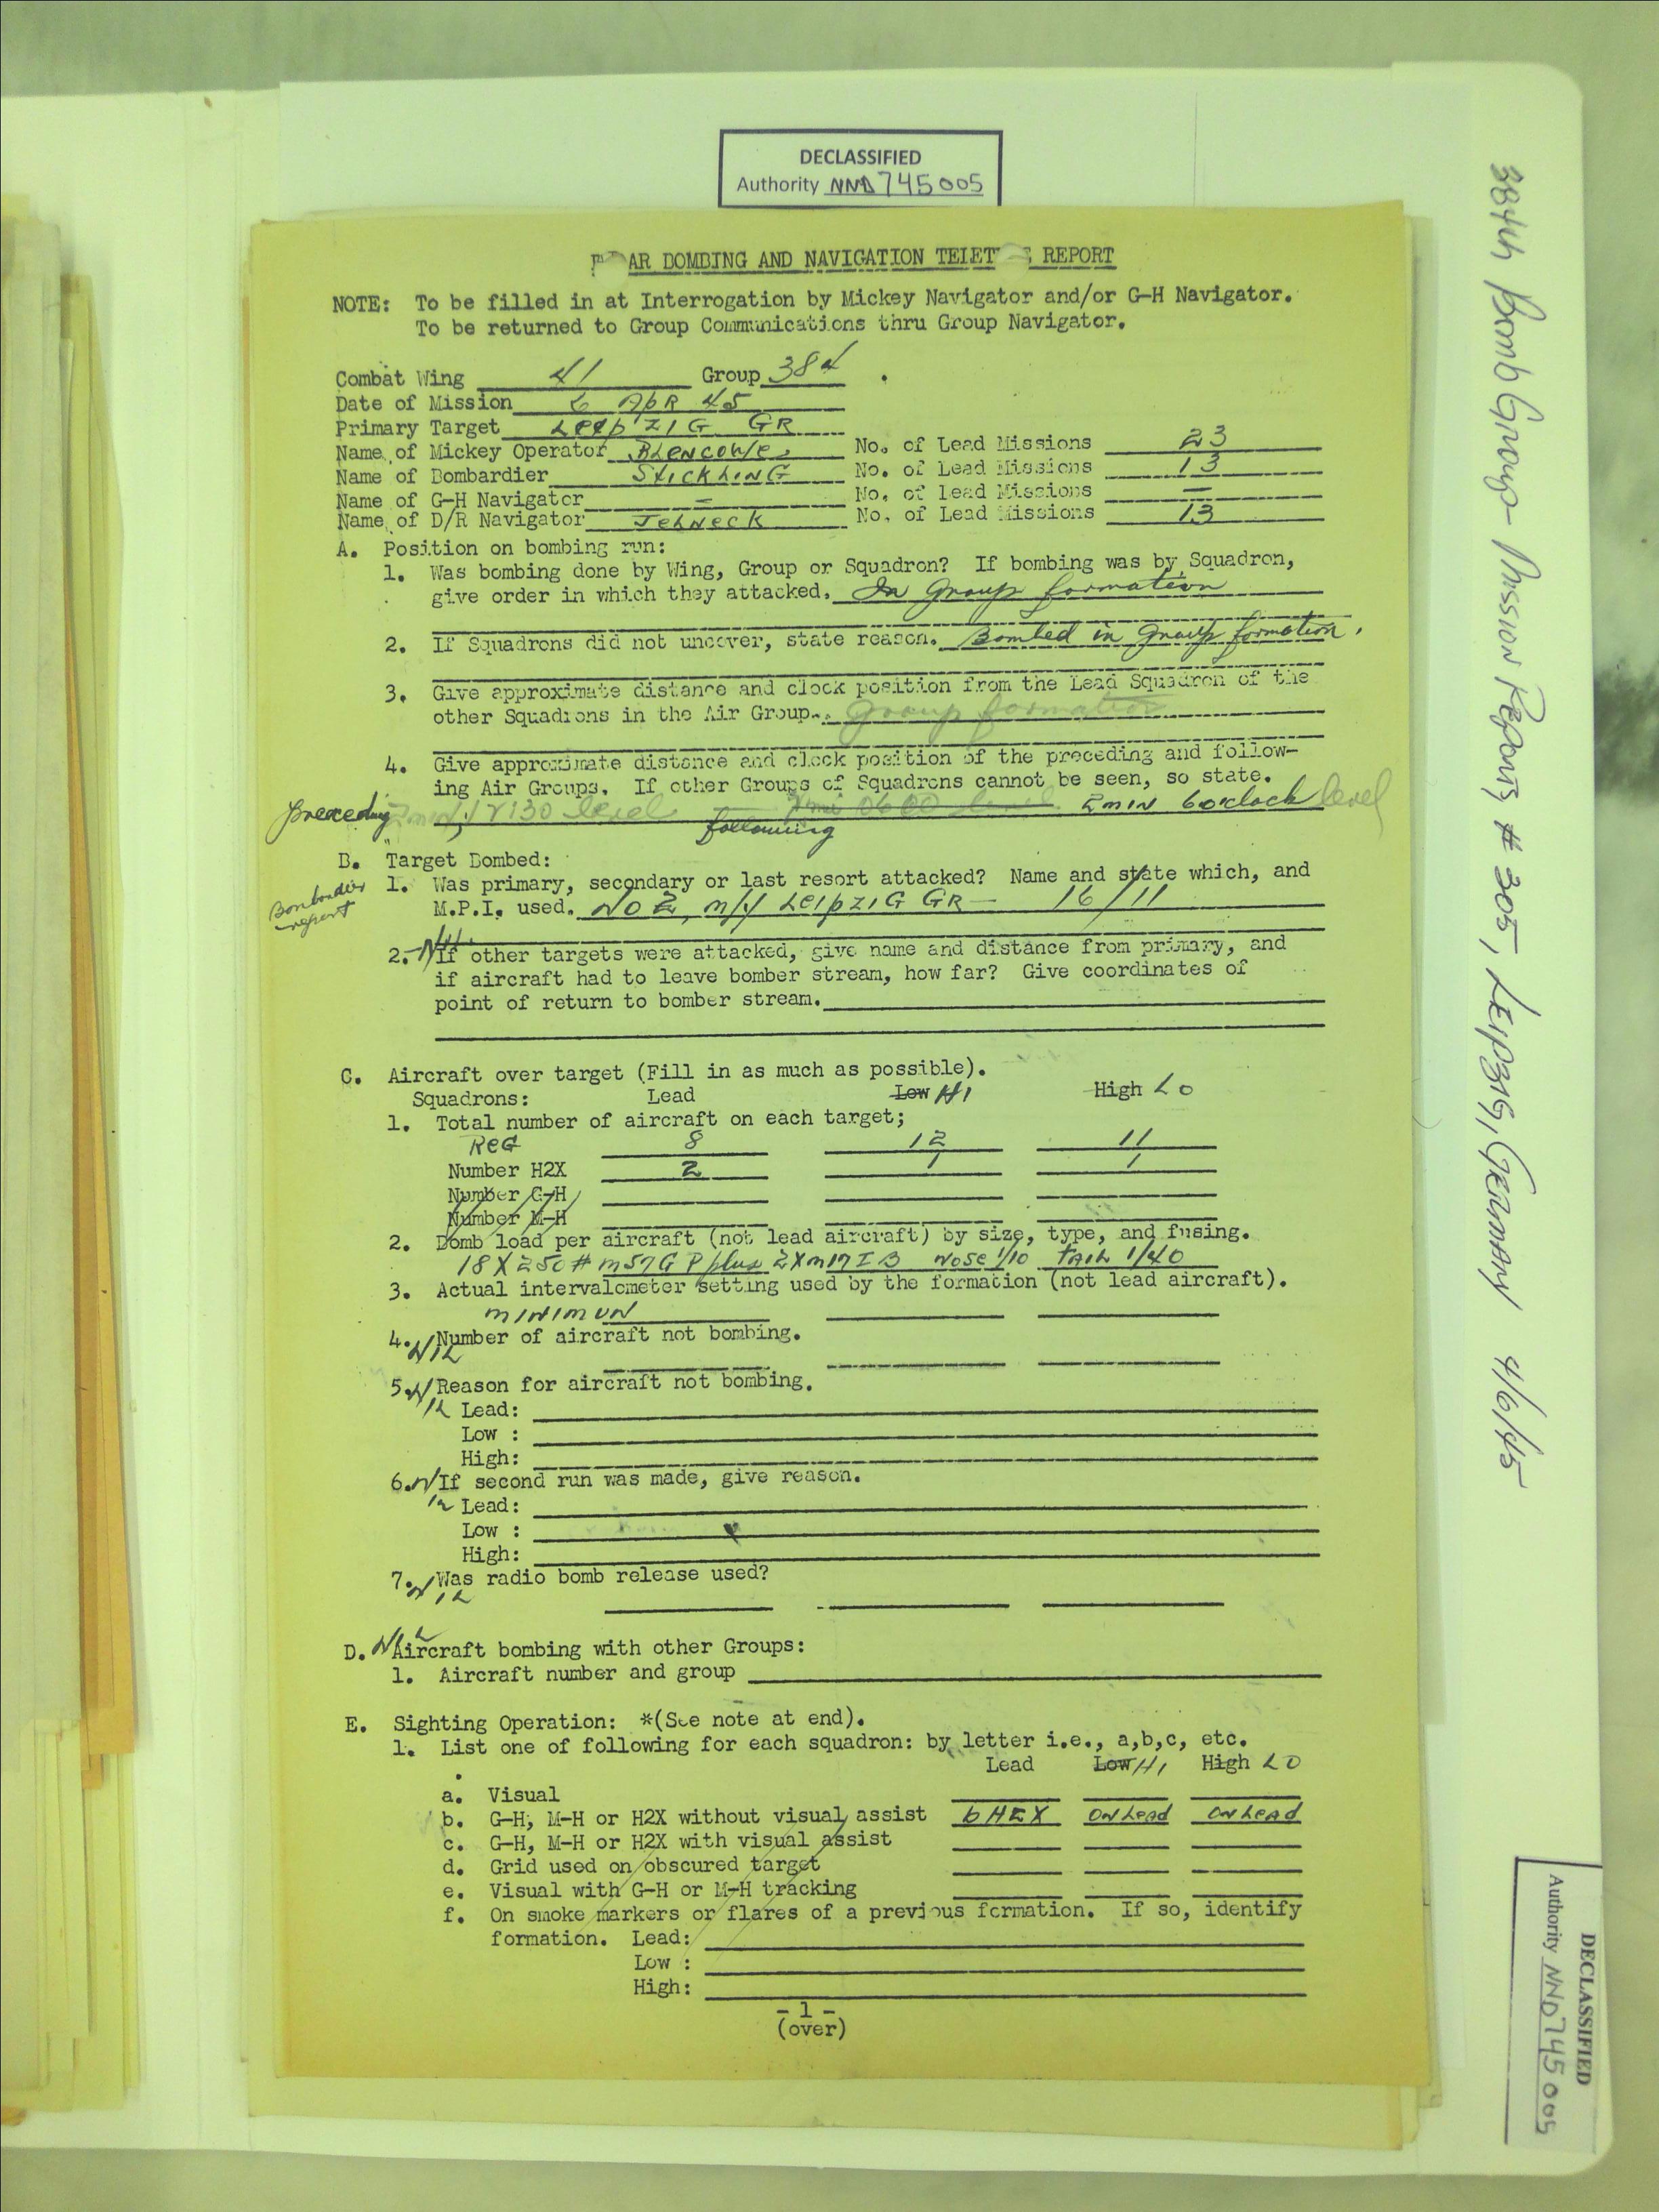 DECLASSIFIED
Authority NND745005
AR BOMBING AND NAVIGATION TELET REPORT
NOTE: To be filled in at Interrogation by Mickey Navigator and/or G-H Navigator.
To be returned to Group Communications thru Group Navigator.
Combat Wing 41 Group 384
Date of Mission 6 Apr 45
Primary Target Leipzig GR
Name of Mickey Operator No. of Lead Missions 23
Name of Bombardier Stickling No. of Lead Missions 13
Name of G-H Navigator — No. of Lead Missions —
Name of D/R Navigator No. of Lead Missions 13
A. Position on bombing run:
1. Was bombing done by Wing, Group or Squadron? If bombing was by Squadron,
give order in which they attacked. In Group formation
2. If Squadrons did not uncover, state reason. Bombed in group formation.
3. Give approximate distance and clock position from the Lead Squadron of the
other Squadrons in the Air Group. Group formation
4. Give approximate distance and clock position of the preceding and follow-
ing Air Groups. If other Groups of Squadrons cannot be seen, so state.
preceding 2 min level 2 min 6 o'clock level
following
B. Target Bombed:
Bombardier report
1. Was primary, secondary or last resort attacked? Name and state which, and
M.P.I. used. No 2, M/Y Leipzig GR — 16/11
2. Nil If other targets were attacked, give name and distance from primary, and
if aircraft had to leave bomber stream, how far? Give coordinates of
point of return to bomber stream.
C. Aircraft over target (Fill in as much as possible).
Squadrons: Lead Low Hi High Lo
1. Total number of aircraft on each target;
Reg 8 12 11
Number H2X 2 1 1
Number G-H
Number M-H
2. Bomb load per aircraft (not lead aircraft) by size, type, and fusing.
18 X 250# M57 GP plus 2 X M17 IB Nose 1/10 Tail 1/40
3. Actual intervalometer setting used by the formation (not lead aircraft).
minimun
4. Nil Number of aircraft not bombing.
5. Nil Reason for aircraft not bombing.
Lead:
Low :
High:
6. Nil If second run was made, give reason.
Lead:
Low :
High:
7. Nil Was radio bomb release used?
D. Nil Aircraft bombing with other Groups:
1. Aircraft number and group
E. Sighting Operation: *(See note at end).
1. List one of following for each squadron: by letter i.e., a,b,c, etc.
Lead Low Hi High Lo
a. Visual
b. G-H, M-H or H2X without visual assist b H2X On Lead On Lead
c. G-H, M-H or H2X with visual assist
d. Grid used on obscured target
e. Visual with G-H or M-H tracking
f. On smoke markers or flares of a previous formation. If so, identify
formation. Lead:
Low :
High:
- 1 -
(over)
384th Bomb Group - Mission Reports # 305, Leipzig, Germany 4/6/45
DECLASSIFIED
Authority NND745005